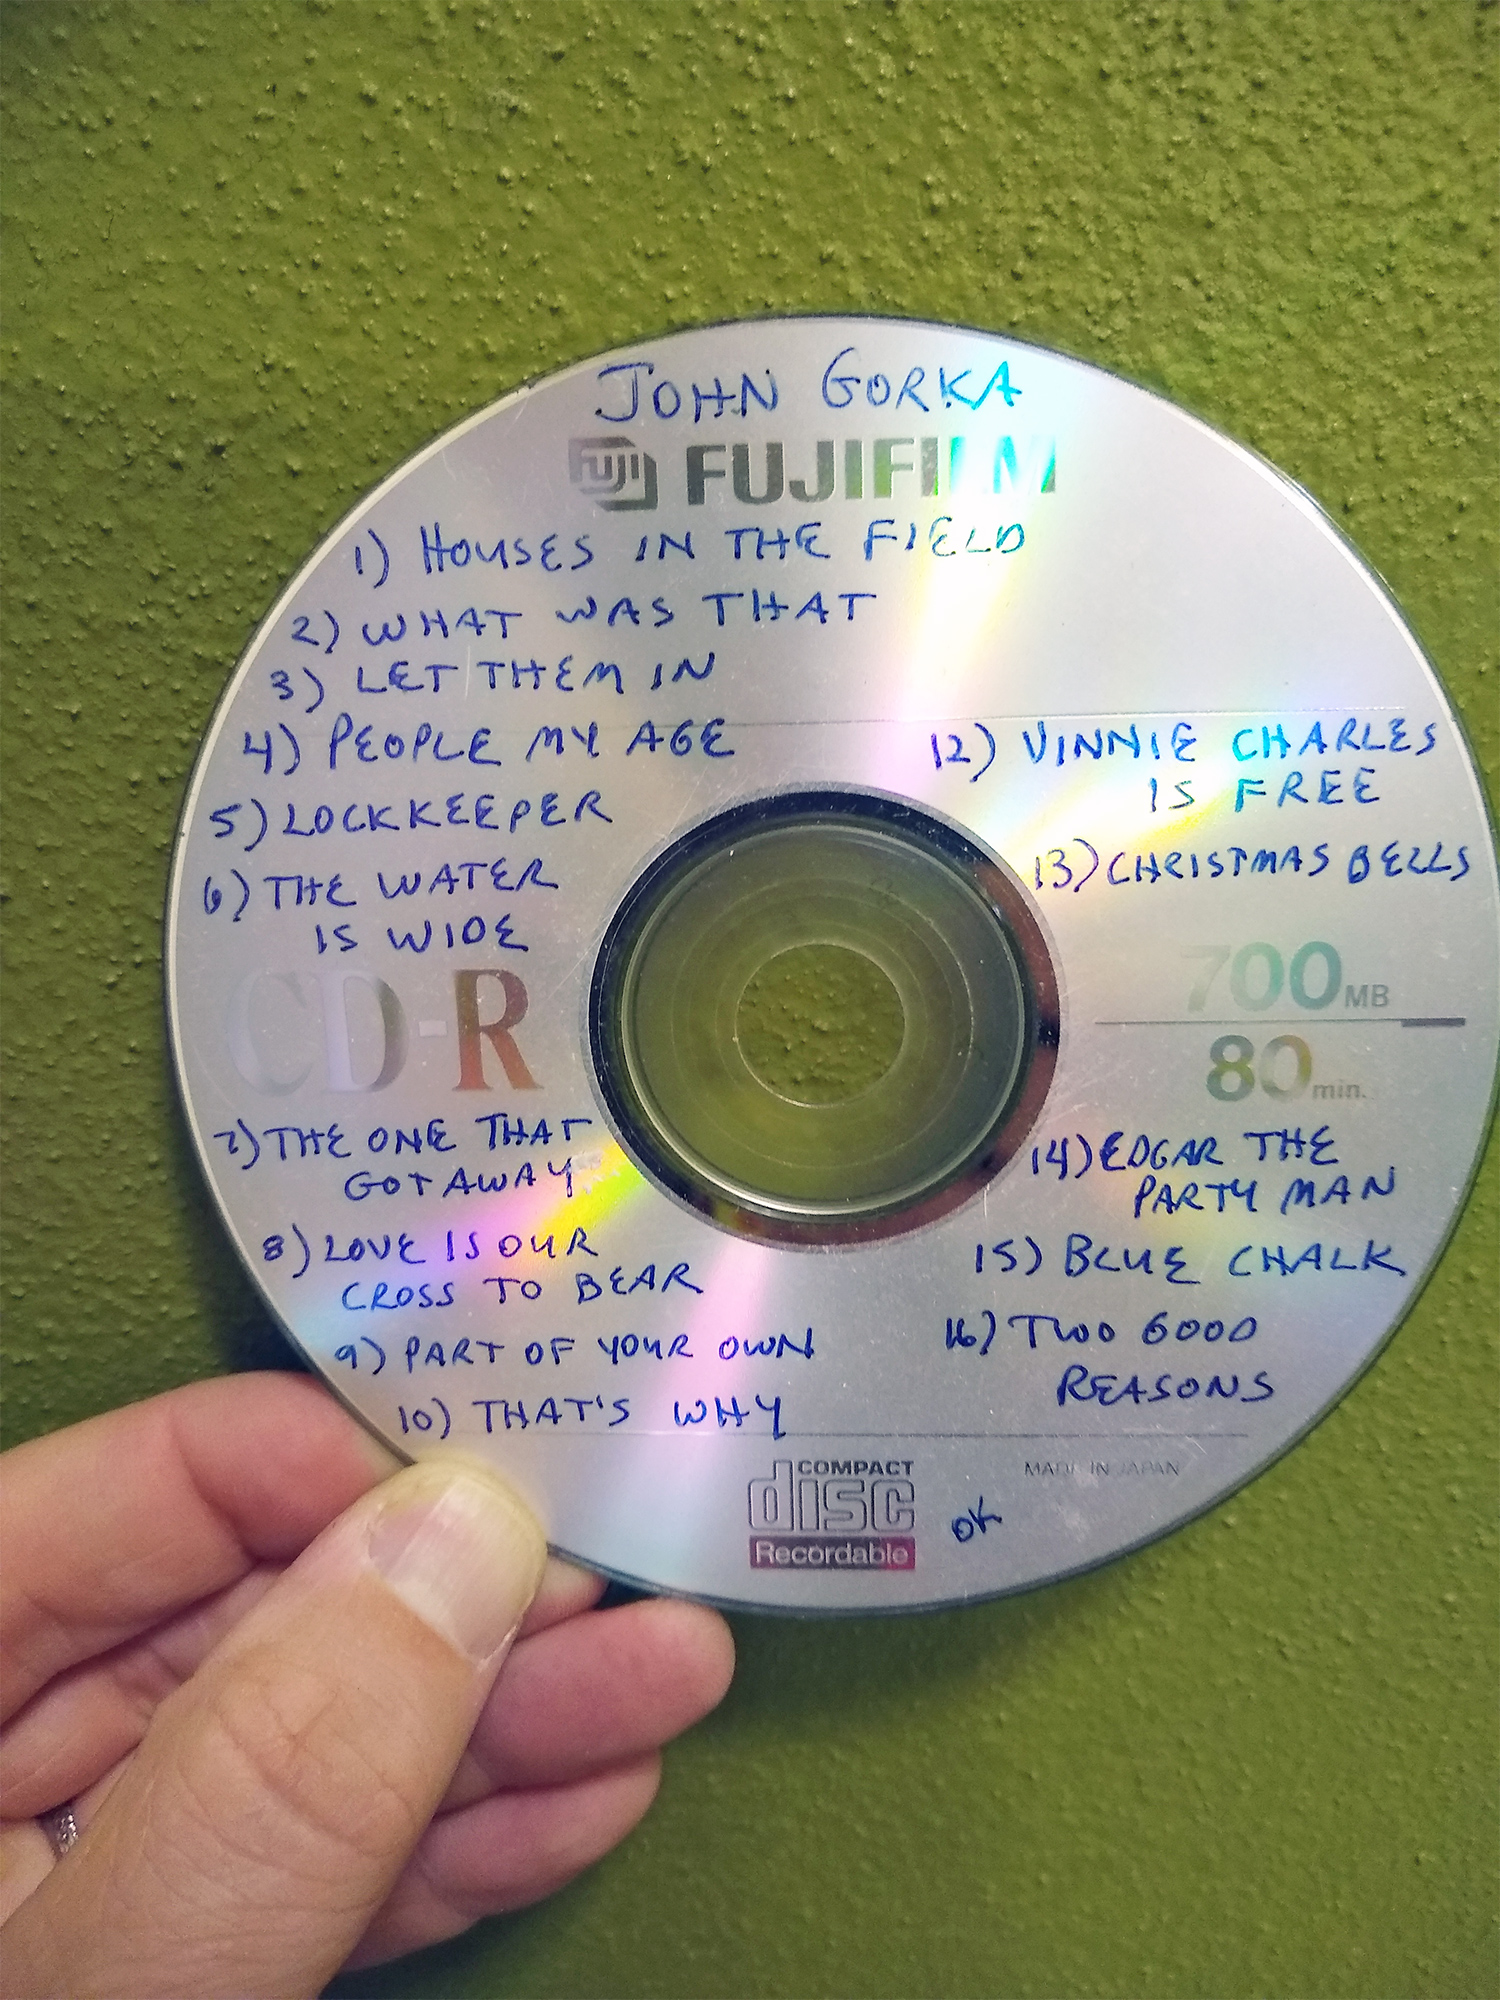 JOHN GORKA
FUJI FUJIFILM
1) HOUSES IN THE FIELD
2) WHAT WAS THAT
3) LET THEM IN
4) PEOPLE MY AGE
5) LOCKKEEPER
6) THE WATER
IS WIDE
CD-R
7) THE ONE THAT
GOT AWAY
8) LOVE IS OUR
CROSS TO BEAR
9) PART OF YOUR OWN
10) THAT'S WHY
12) VINNIE CHARLES
IS FREE
13) CHRISTMAS BELLS
700MB
80min.
14) EDGAR THE
PARTY MAN
15) BLUE CHALK
16) TWO GOOD
REASONS
MADE IN JAPAN
COMPACT
disc
Recordable
OK